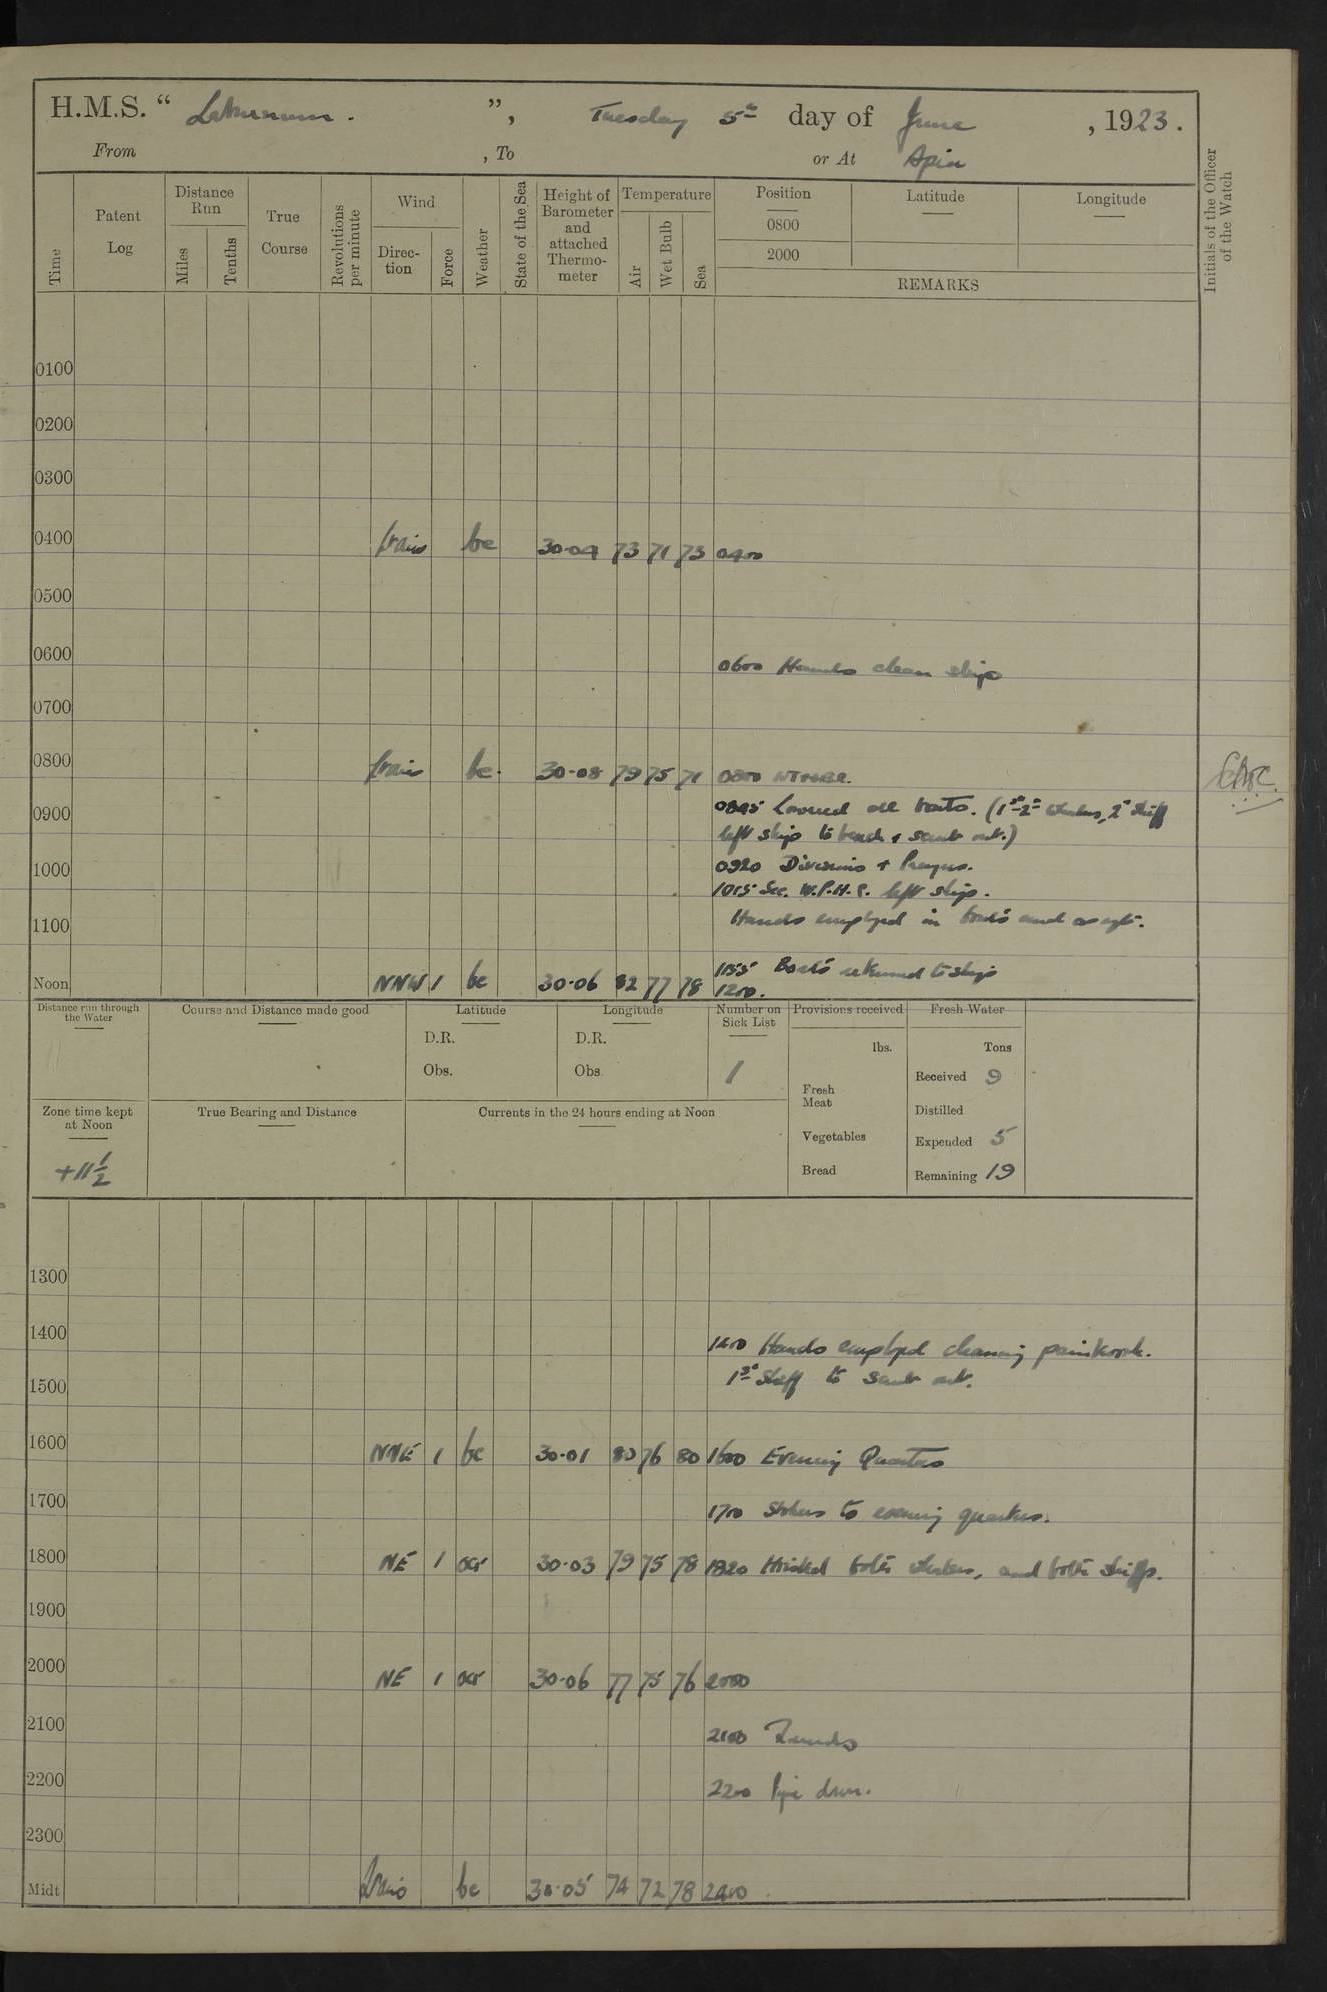 H.M.S. “ Laburnum. ”, Tuesday 5th day of June , 1923.
From , To or At Apia
Time
Patent Log
Distance Run
Miles
Tenths
True Course
Revolutions per minute
Wind
Direction
Force
Weather
State of the Sea
Height of Barometer and attached Thermometer
Temperature
Air
Wet Bulb
Sea
Position
Latitude
Longitude
0800
2000
REMARKS
Initials of the Officer of the Watch
0100
0200
0300
0400 bc 30·04 73 71 73 0400
0500
0600 0600 Hands clean ship
0700
0800 bc. 30·08 79 75 71 0800
0900 0845 Lowered all boats. (1st 2nd whalers, 2nd skiff
left ship to beach & scrub out.)
0920 Divisions & Prayers.
1000
1015 Sec. W.P.H.C. left ship.
1100 Hands employed in boats and as reqte.
1155 Boats returned to ship
Noon NNW 1 bc 30·06 82 77 78 1200.
Distance run through the Water
Course and Distance made good
Latitude
D.R.
Obs.
Longitude
D.R.
Obs
Number on Sick List
1
Provisions received
lbs.
Fresh Meat
Vegetables
Bread
Fresh Water
Tons
Received 9
Distilled
Expended 5
Remaining 19
Zone time kept at Noon
+11½
True Bearing and Distance
Currents in the 24 hours ending at Noon
1300
1400 1400 Hands employed cleaning paintwork.
1st Skiff to scrub out.
1500
1600 NNE 1 bc 30·01 80 76 80 1600 Evening Quarters
1700 1700 Stokers to evening quarters.
1800 NE 1 ocr 30·03 79 75 78 1820 Hoisted both whalers, and both skiffs.
1900
2000 NE 1 ocr 30·06 77 75 76 2000
2100 2100 Rounds
2200 2200 Pipe down.
2300
Midt bc 30·05 74 72 78 2400